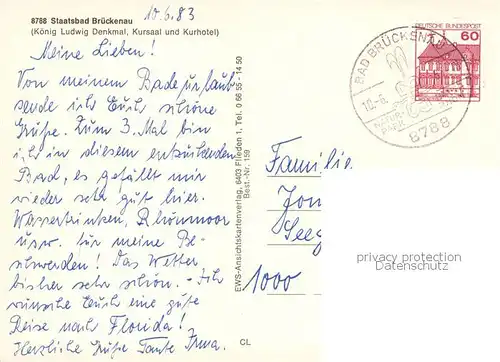 8788 Staatsbad Brückenau
(König Ludwig Denkmal, Kursaal und Kurhotel)
10.6.83
Meine Lieben!
Von meinem Badeurlaub
sende ich Euch schöne
Grüße. Zum 3. Mal bin
ich in diesem entzückenden
Bad, es gefällt mir
wieder sehr gut hier.
Wassertrinken, Rhönmoor
usw. für meine Be-
schwerden! Das Wetter
bisher sehr schön. - Ich
wünsche Euch eine gute
Reise nach Florida!
Herzliche Grüße Tante Irma.
EWS-Ansichtskartenverlag, 6403 Flieden 1, Tel. 0 66 55 - 14 50
Best.-Nr. 159
CL
BAD BRÜCKENAU
10.-6.
8788
DEUTSCHE BUNDESPOST
60
Familie
1000
privacy protection
Datenschutz